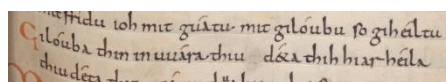 mit fridu ioh mit guatu. mit giloubu so giheiltu
Gilouba thin in uuara. thiu déta thih hiar heila
thiu déta thi